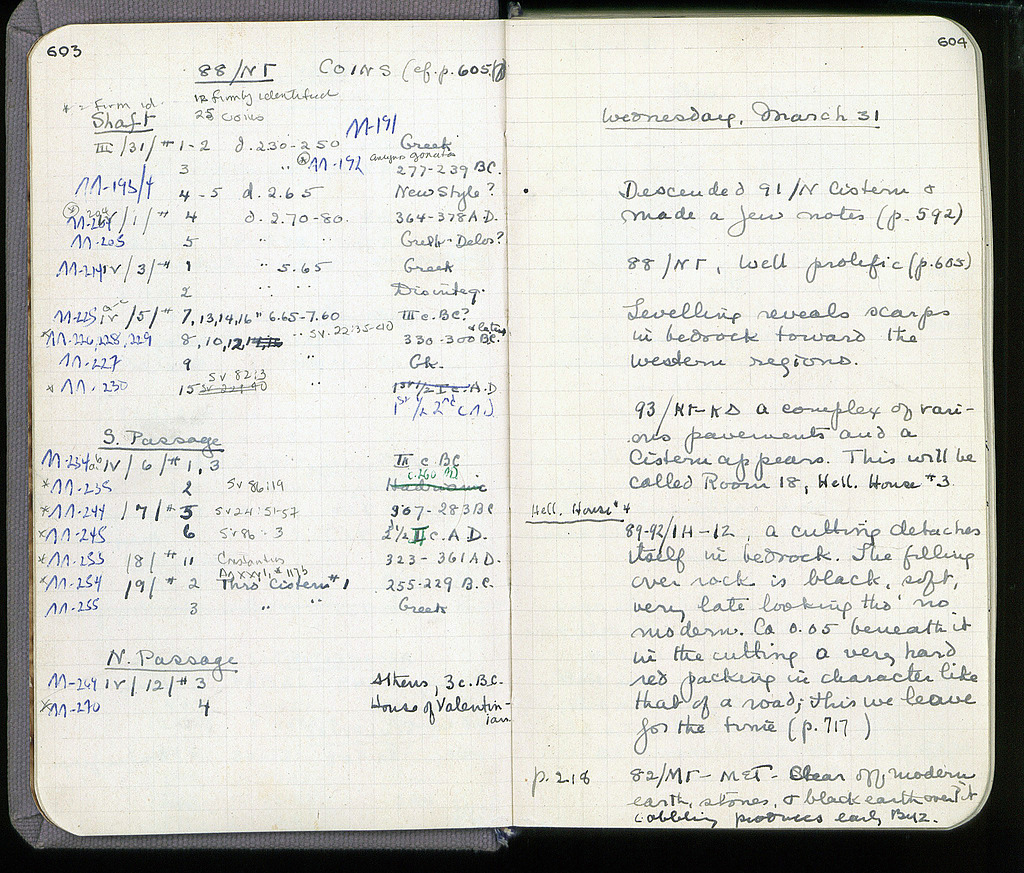 603
88/NΓ COINS (cf. p. 605)
* = Firm id. 12 firmly identified
Shaft 25 coins
ΛΛ-191
III /31/ # 1-2 d. 2.30-2.50 Greek
3 " ΛΛ-192 277-239 BC.
ΛΛ-193/4 4-5 d. 2.65 New Style?
ΛΛ-204 IV /1/ # 4 d. 2.70-80. 364-378 A.D.
ΛΛ-205 5 " " Greek-Delos?
ΛΛ-214 IV /3/ # 1 " 5.65 Greek
2 " " Disinteg.
ΛΛ-225 a-c IV /5/ # 7, 13, 14, 16 " 6.65-7.60 III c. BC?
*ΛΛ-226, 228, 229 8, 10, 12 " " Sv. 22:35-40 330-300 BC. & later
ΛΛ-227 9 " Gk.
* ΛΛ-230 15 Sv 82:3 " 1st 1/2 I c. A.D
1st 1/2 2nd c (A.)
S. Passage
ΛΛ-234ab IV / 6 / # 1, 3 III c. BC
*ΛΛ-235 2 Sv 86:19 Hadrianic
*ΛΛ-244 /7/ # 5 Sv 24:51-57 307-283 BC
*ΛΛ-245 6 Sv 86-3 2 1/2 II c. A.D.
*ΛΛ-253 /8/ # 11 Constantius 323-361 A.D.
*ΛΛ-254 /9/ # 2 Thro' Cistern #1 255-229 B.C.
ΛΛ-255 3 " " Greek
N. Passage
ΛΛ-269 IV / 12 / # 3 Athens, 3 c. BC.
*ΛΛ-270 4 House of Valentin-
ian
604
Wednesday, March 31
Descended 91/N Cistern &
made a few notes (p. 592)
88/NΓ, Well prolific (p. 605)
Levelling reveals scarps
in bedrock toward the
western regions.
93/ΚΓ-ΚΔ a complex of vari-
ous pavements and a
Cistern appears. This will be
called Room 18, Hell. House #3.
Hell. House #4
89-92/ΙΗ-ΙΖ, a cutting detaches
itself in bedrock. The filling
over rock is black, soft,
very late looking tho' no
modern. Ca 0.05 beneath it
in the cutting a very hard
red packing in character like
that of a road; this we leave
for the time (p. 717)
p. 218 82/ΜΓ-ΜΣΤ- Clear off modern
earth, stones, & black earth over it
cobbling produces early Byz.